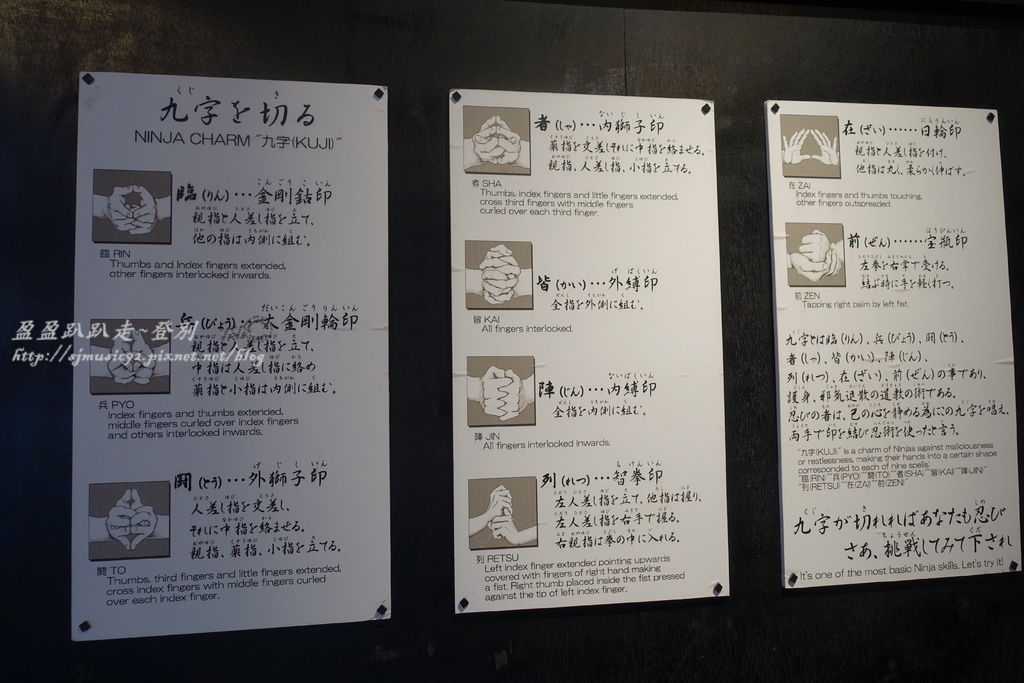 九字を切る
NINJA CHARM "九字(KUJI)"
臨(りん)…金剛鈷印
親指と人差し指を立て、
他の指は内側に組む。
臨 RIN
Thumbs and Index fingers extended,
other fingers interlocked inwards.
兵(ぴょう)…大金剛輪印
親指と人差し指を立て、
中指は人差し指に絡め
薬指と小指は内側に組む。
兵 PYO
Index fingers and thumbs extended,
middle fingers curled over index fingers
and others interlocked inwards.
闘(とう)…外獅子印
人差し指を交差し、
それに中指を絡ませる。
親指、薬指、小指を立てる。
闘 TO
Thumbs, third fingers and little fingers extended,
cross index fingers with middle fingers curled
over each index finger.
者(しゃ)…内獅子印
薬指を交差しそれに中指を絡ませる。
親指、人差し指、小指を立てる。
者 SHA
Thumbs, index fingers and little fingers extended,
cross third fingers with middle fingers
curled over each third finger.
皆(かい)…外縛印
全指を外側に組む。
皆 KAI
All fingers interlocked.
陣(じん)…内縛印
全指を内側に組む。
陣 JIN
All fingers interlocked inwards.
列(れつ)…智拳印
左人差し指を立て、他指は握り、
左人差し指を右手で握る。
右親指は拳の中に入れる。
列 RETSU
Left index finger extended pointing upwards
covered with fingers of right hand making
a fist. Right thumb placed inside the fist pressed
against the tip of left index finger.
在(ざい)……日輪印
親指と人差し指を付け、
他指は丸く、柔らかく伸ばす。
在 ZAI
Index fingers and thumbs touching,
other fingers outspreaded.
前(ぜん)……宝瓶印
左拳を右掌で受ける。
結ぶ時に手を軽く打つ。
前 ZEN
Tapping right palm by left fist.
九字とは臨(りん)、兵(ぴょう)、闘(とう)、
者(しゃ)、皆(かい)、陣(じん)、
列(れつ)、在(ざい)、前(ぜん)の事であり、
護身、邪気退散の道教の術である。
忍びの者は、己の心を静める為にこの九字を唱え、
両手で印を結び忍術を使ったと言う。
"九字(KUJI)" is a charm of Ninjas against maliciousness
or restlessness, making their hands into a certain shape
corresponded to each of nine spells;
"臨(RIN)" "兵(PYO)" "闘(TO)" "者(SHA)" "皆(KAI)" "陣(JIN)"
"列(RETSU)" "在(ZAI)" "前(ZEN)"
九字が切れればあなたも忍び
さあ、挑戦してみて下され
It's one of the most basic Ninja skills. Let's try it!
盈盈趴趴走~登別
http://sjmusic92.pixnet.net/blog